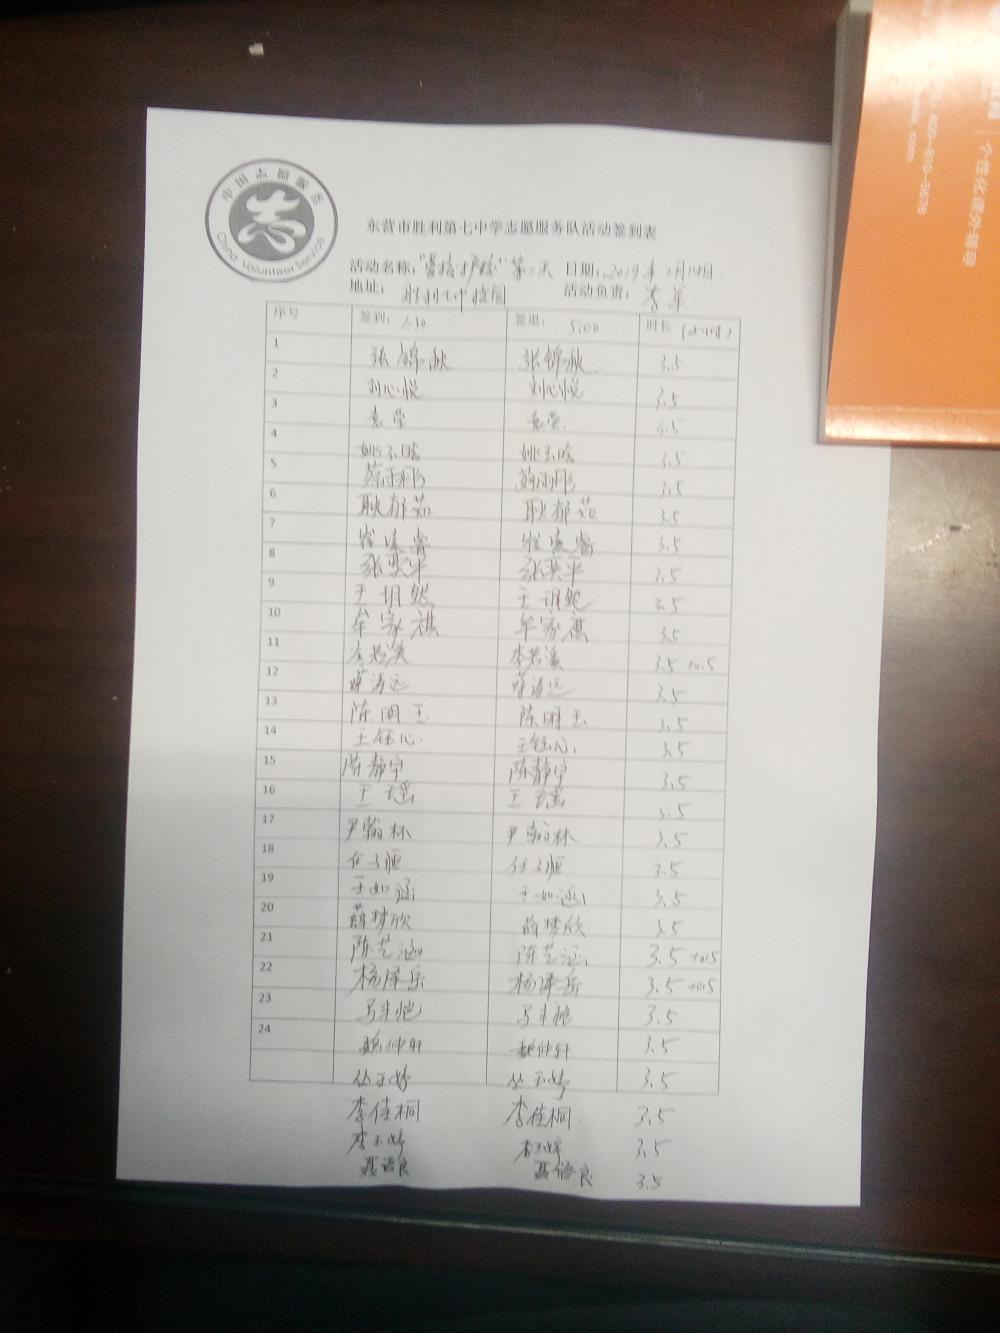 中国志愿服务
China Volunteer Service
400-810-5678
个性化课外辅导
东营市胜利第七中学志愿服务队活动签到表
活动名称："爱校护校"第二天 日期：2019年2月14日
地址： 胜利七中校园 活动负责：李军
序号 签到：1:30 签退：5:00 时长（小时）
1 张锦秋 张锦秋 3.5
2 刘心悦 刘心悦 3.5
3 袁莹 袁莹 3.5
4 姚玉晗 姚玉晗 3.5
5 薛雨彤 薛雨彤 3.5
6 耿郁茹 耿郁茹 3.5
7 3.5
8 张奕平 张奕平 3.5
9 王玥然 王玥然 3.5
10 牟家祺 牟家祺 3.5
11 李若溪 李若溪 3.5 +0.5
12 薛涛远 薛涛远 3.5
13 陈明玉 陈明玉 3.5
14 王钰心 王钰心 3.5
15 陈静宇 陈静宇 3.5
16 王瑶 王瑶 3.5
17 尹翰林 尹翰林 3.5
18 任子恒 任子恒 3.5
19 于如涵 于如涵 3.5
20 薛梦欣 薛梦欣 3.5
21 陈艺涵 陈艺涵 3.5 +0.5
22 杨泽岳 杨泽岳 3.5 +0.5
23 马丰恺 马丰恺 3.5
24 魏仲轩 魏仲轩 3.5
丛玉婷 丛玉婷 3.5
李佳桐 李佳桐 3.5
李玉婷 李玉婷 3.5
聂语良 聂语良 3.5